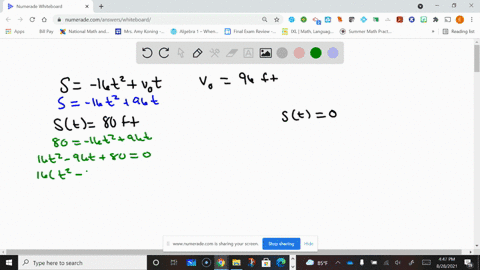 Numerade Whiteboard
numerade.com/answers/whiteboard/
Apps
Bill Pay
National Math and...
Mrs. Amy Koning -...
Algebra 1 - Wheon...
Final Exam Review -...
(X.) Math, Languag...
Summer Math Practi...
Reading list
S = -16t² + v₀t
v₀ = 96 ft
S = -16t² + 96t
S(t) = 80 ft
S(t) = 0
80 = -16t² + 96t
16t² - 96t + 80 = 0
16(t² -
www.numerade.com is sharing your screen.
Stop sharing
Hide
Type here to search
85°F
4:47 PM
8/28/2021